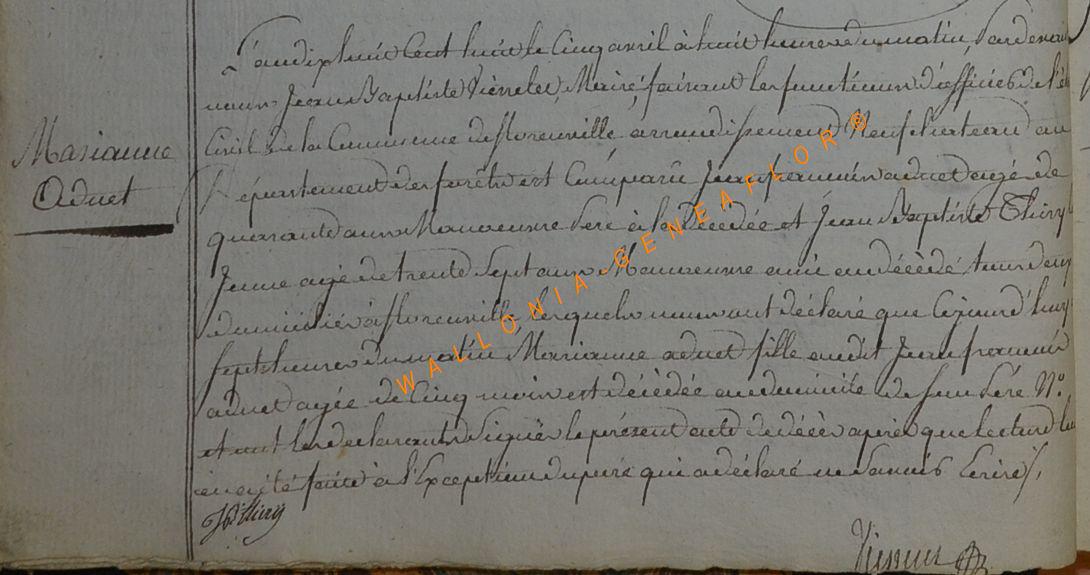 Marianne
Aduet
L'an dix huit cent huit le Cinq avril à huit heures du matin, Pardevant
nous Jean Baptiste Maire, faisant les fonctions d'officier de l'état
Civil de la Commune de florenville arrondissement Neufchateau au
Département des forêts est Comparu Jean francois aduet agé de
quarante ans Manoeuvre Pere à la Décédée et Jean Baptiste Thiry
Jeune agé de trente Sept ans Manoeuvre ami au décédé tous deux
domiciliés à florenville, lesquels nous ont déclaré que Cejourd'huy
sept heures du matin Marianne aduet fille audit Jean francois
aduet agée de Cinq mois est décédée au domicile de son Pére N°
et ont les declarants Signés le présent acte de décès après que lecture
en a été faite à l'Exception du pere qui a déclaré ne Savoir Ecrire /.
JBthiry
WALLONIA GENEAFLOR ®